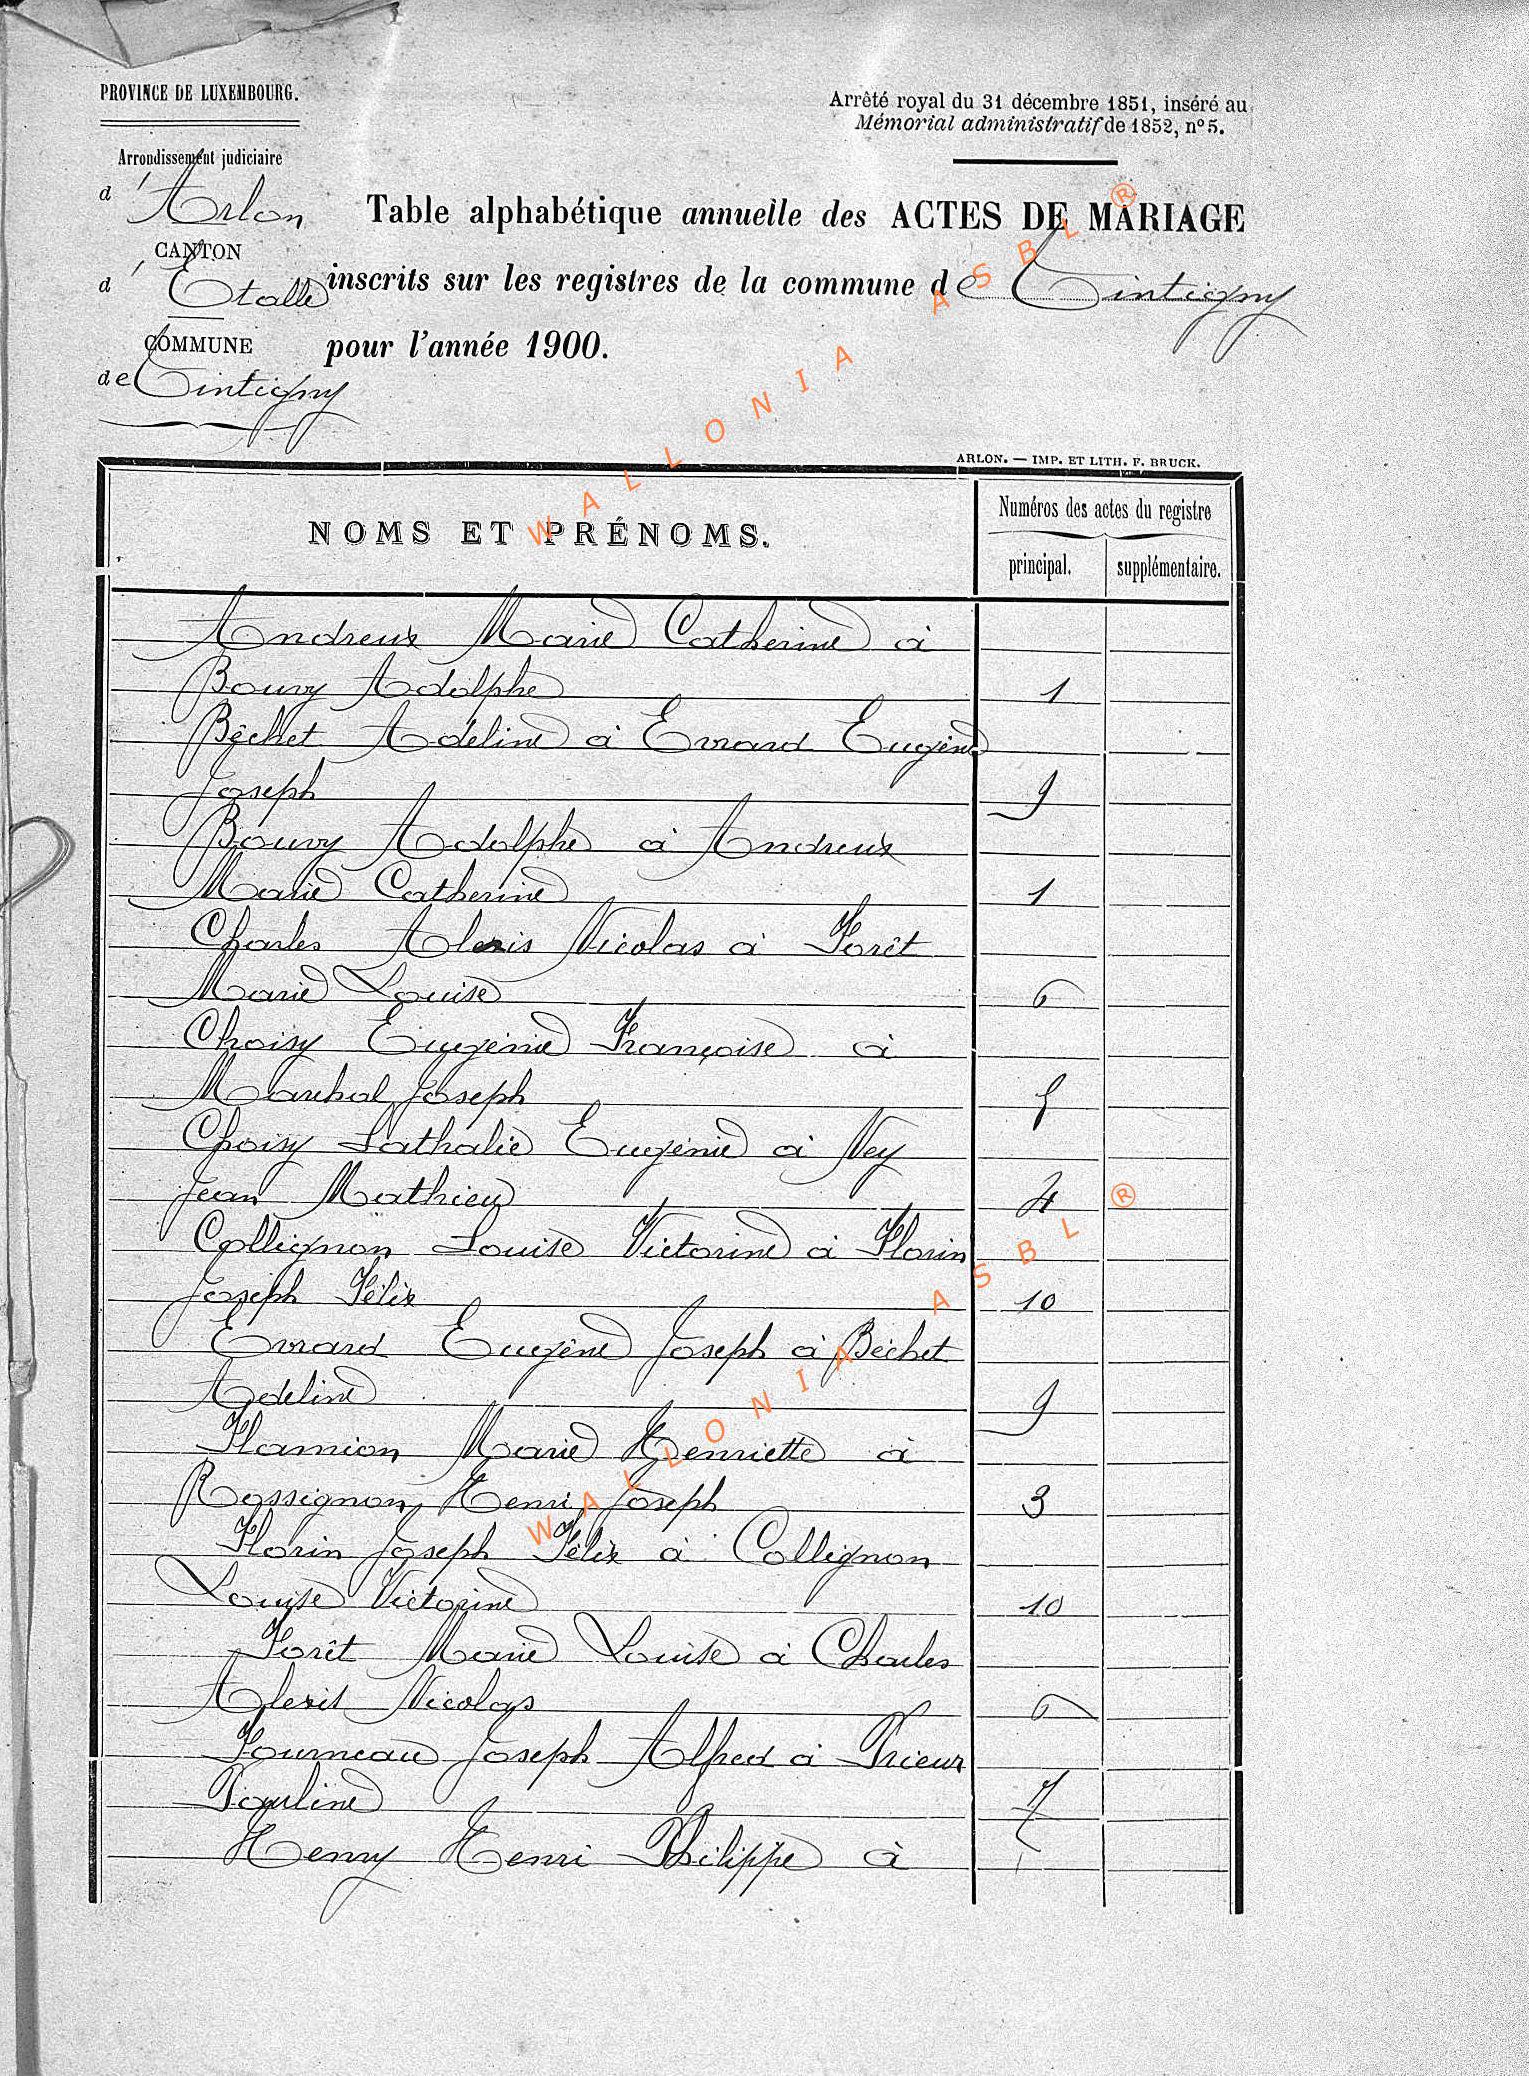 PROVINCE DE LUXEMBOURG.
Arrondissement judiciaire
d'Arlon
CANTON
d'Etalle
COMMUNE
de Tintigny
Arrêté royal du 31 décembre 1851, inséré au
Mémorial administratif de 1852, n° 5.
Table alphabétique annuelle des ACTES DE MARIAGE
inscrits sur les registres de la commune de Tintigny
pour l'année 1900.
ARLON. — IMP. ET LITH. F. BRUCK.
NOMS ET PRÉNOMS.
Numéros des actes du registre
principal. supplémentaire.
Andreux Marie Catherine à
Bouvy Adolphe 1
Bêchet Adeline à Evrard Eugène
Joseph 9
Bouvy Adolphe à Andreux
Marie Catherine 1
Charles Alexis Nicolas à Forêt
Marie Louise 6
Choisy Eugénie Françoise à
Maréchal Joseph 5
Choisy Nathalie Eugénie à Ney
Jean Mathieu 4
Collignon Louise Victorine à Florin
Joseph Félix 10
Evrard Eugène Joseph à Béchet
Adeline 9
Flamion Marie Henriette à
Rossignon Henri Joseph 3
Florin Joseph Félix à Collignon
Louise Victorine 10
Forêt Marie Louise à Charles
Alexis Nicolas 6
Fourneau Joseph Alfred à Prieur
Pauline 7
Henry Henri Philippe à
WALLONIA ASBL ®
WALLONIA ASBL ®